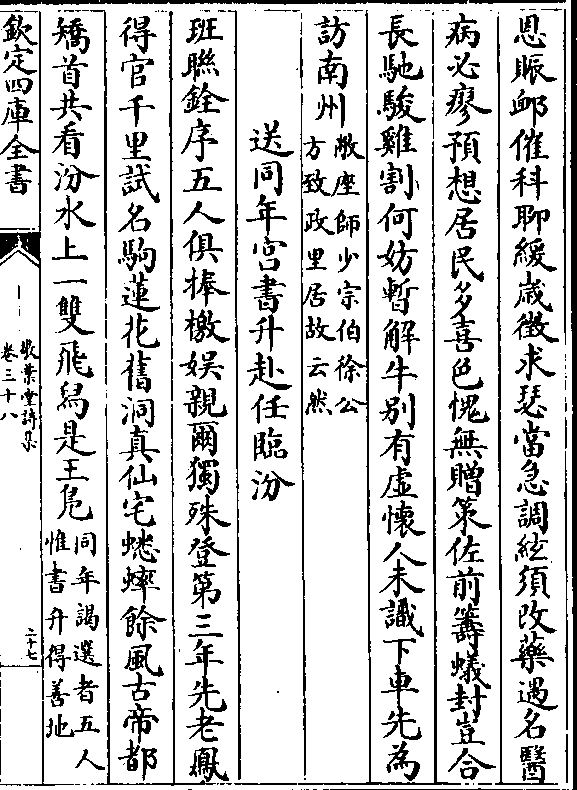 恩賑䘏催科聊緩歲徵求瑟當急調絃須改藥遇名醫
病必瘳預想居民多喜色愧無贈策佐前籌蟻封豈合
長馳駿雞割何妨暫解牛别有虚懷人未識下車先為
訪南州敝座師少宗伯徐公
方致政里居故云然
送同年宫書升赴任臨汾
班聨銓序五人俱捧檄娱親爾獨殊登第三年先老鳳
得官千里試名駒蓮花舊洞真仙宅蟋蟀餘風古帝都
矯首共看汾水上一雙飛舄是王鳬同年謁選者五人
惟書升得善地
欽定四庫全書
敬業堂詩集
卷三十八
二十七